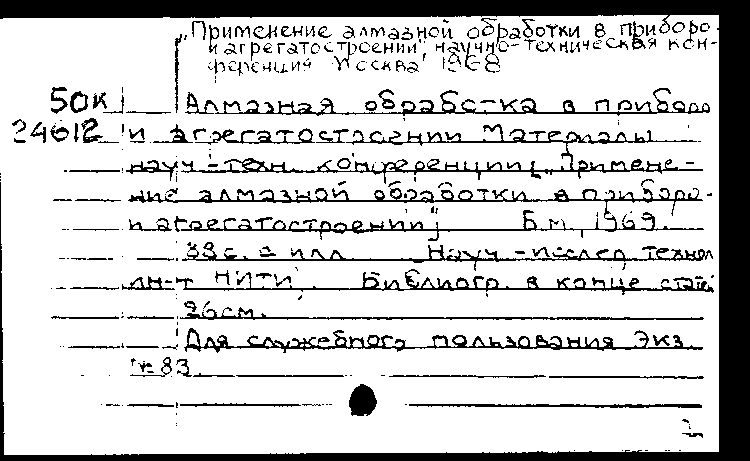 „Применение алмазной обработки в приборо-
и агрегатостроении", научно-техническая кон-
ференция Москва 1968
50к Алмазная обработка в приборо
24612 и агрегатостроении Материалы
науч-техн. конференции [„Примене-
ние алмазной обработки в приборо-
и агрегатостроении"] Б.м., 1969.
с. с илл. Науч-исслед технол
ин-т НИТИ. Библиогр. в конце статей
26см.
Для служебного пользования Экз.
№ 83.